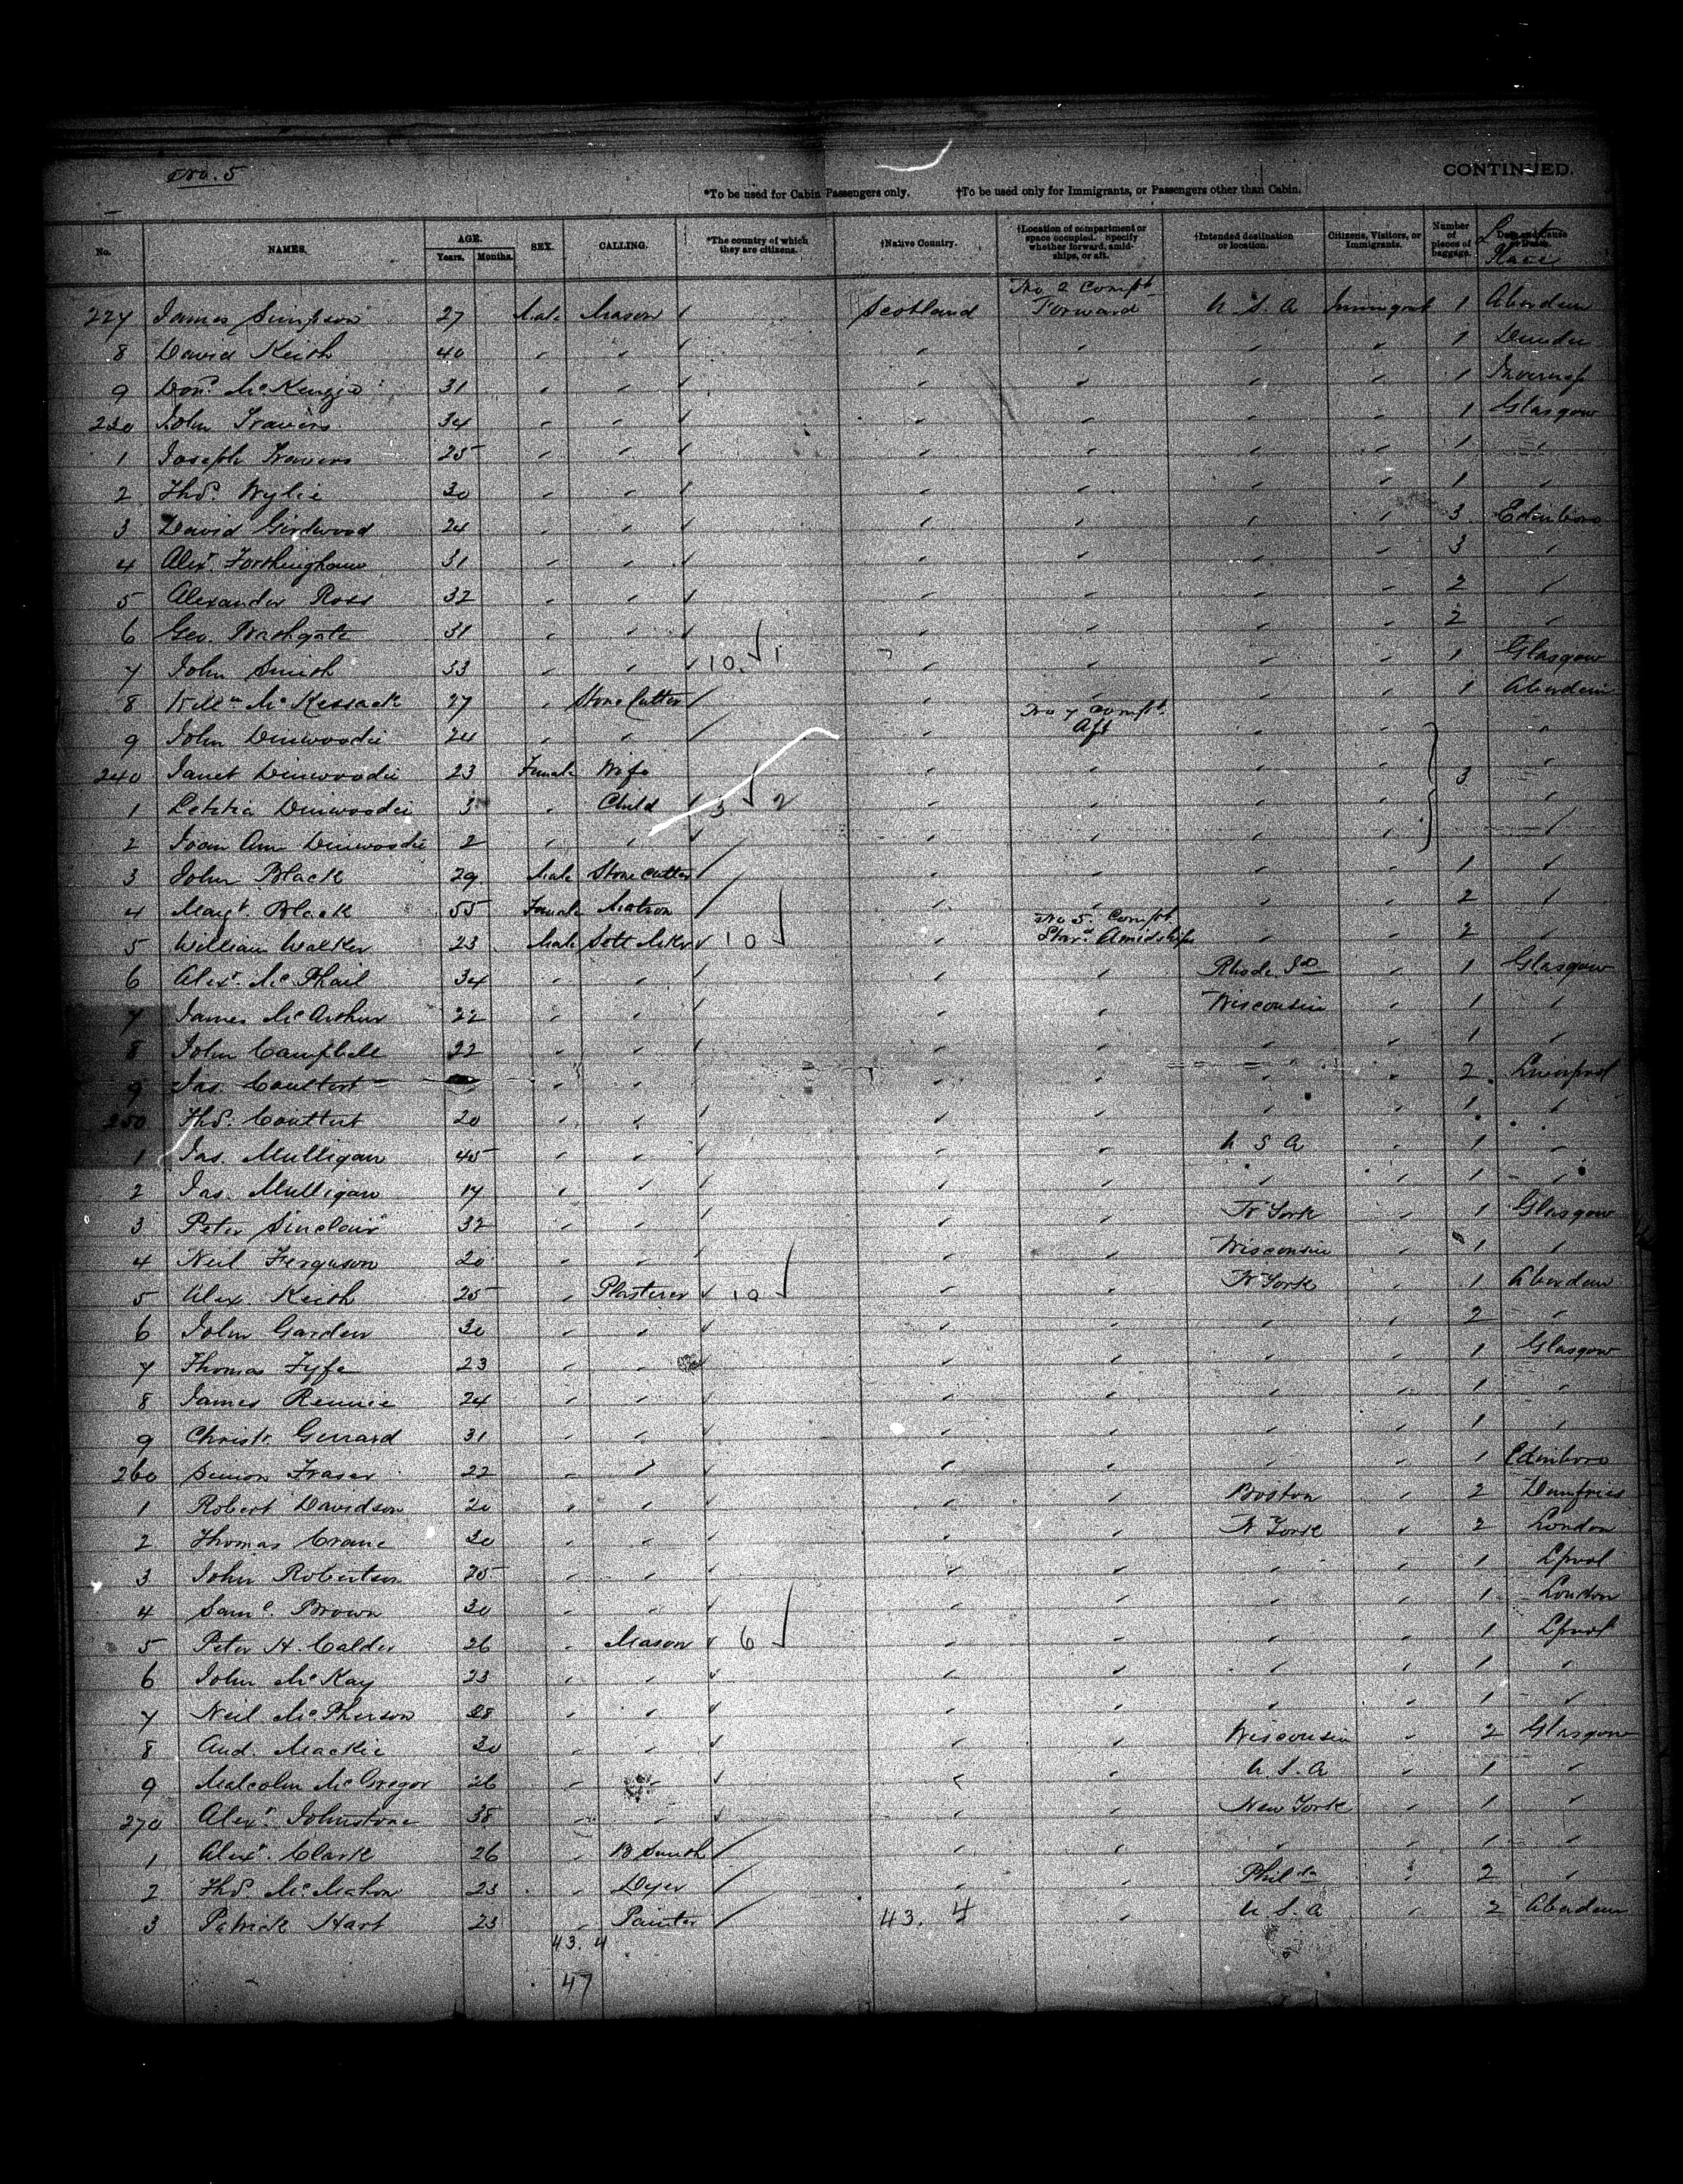 No. 5
CONTINUED.
*To be used for Cabin Passengers only. †To be used only for Immigrants, or Passengers other than Cabin.
No. NAMES. AGE. Years. Months. SEX. CALLING. *The country of which they are citizens. †Native Country. †Location of compartment or space occupied. Specify whether forward, amidships, or aft. †Intended destination or location. Citizens, Visitors, or Immigrants. Number of pieces of baggage. Place
No 2 Compt
227 James Simpson 27 Male Mason Scotland Forward U.S.A Immigrant 1 Aberdeen
8 David Keith 40 " " " " " " 1 Dundee
9 Don. McKenzie 31 " " " " " " 1 Inverness
230 John Travers 34 " " " " " " 1 Glasgow
1 Joseph Travers 25 " " " " " " 1 "
2 Thos. Wylie 30 " " " " " " 1 "
3 David Girdwood 24 " " " " " " 3 Edinboro
4 Alexr. Forthingham 31 " " " " " " 3 "
5 Alexander Ross 32 " " " " " " 2 "
6 Geo. Bathgate 31 " " " " " " 2 "
7 John Smith 33 " " 10 1 " " " " 1 Glasgow
8 Willm McKessack 27 " Stone Cutter " " " " 1 Aberdeen
No 7 Compt.
9 John Dinwoodie 24 " " " Aft " " "
240 Janet Dinwoodie 23 Female Wife " " " " 3 "
1 Letitia Dinwoodie 3 " Child 3 2 " " " " "
2 Joan Ann Dinwoodie 2 " " " " " " "
3 John Black 29 Male Stone Cutter " " " " 1 "
4 Margt. Black 55 Female Matron " " " " 2 "
No 5. Compt.
5 William Walker 23 Male Sett Mkr 10 " Starbd Amidships " " 2 "
6 Alexr. McPhail 34 " " " " Rhode Id " 1 Glasgow
7 James McArthur 22 " " " " Wisconsin " 1 "
8 John Campbell 22 " " " " " " 1 "
9 Jas. Coultert " " " " " " 2 Liverpool
250 Thos. Coultert 20 " " " " " " 1 "
1 Jas. Mulligan 45 " " " " U S A " 1 "
2 Jas. Mulligan 17 " " " " " " 1 "
3 Peter Sinclair 32 " " " " N York " 1 Glasgow
4 Neil Ferguson 20 " " " " Wisconsin " 1 "
5 Alex. Keith 25 " Plasterer 10 " " N York " 1 Aberdeen
6 John Garden 30 " " " " " " 2 "
7 Thomas Fyfe 23 " " " " " " 1 Glasgow
8 James Rennie 24 " " " " " " 1 "
9 Christr. Gerrard 31 " " " " " " 1 "
260 Simon Fraser 22 " " " " " " 1 Edinboro
1 Robert Davidson 20 " " " " Boston " 2 Dumfries
2 Thomas Crane 30 " " " " N York " 2 London
3 John Robertson 25 " " " " " " 1 Lpool
4 Saml. Brown 30 " " " " " " 1 London
5 Peter H. Calder 26 " Mason 6 " " " " 1 Lpool
6 John McKay 23 " " " " " " 1 "
7 Neil McPherson 28 " " " " " " 1 "
8 And. Mackie 30 " " " " Wisconsin " 2 Glasgow
9 Malcolm McGregor 26 " " " " U.S.A " 1 "
270 Alexr. Johnstone 38 " " " " New York " 1 "
1 Alexr. Clark 26 " B Smith " " " " 1 "
2 Thos. McMahon 23 " Dyer " " Phila " 2 "
3 Patrick Hart 23 " Painter 43. 4 " U.S.A " 2 Aberdeen
43. 4
47